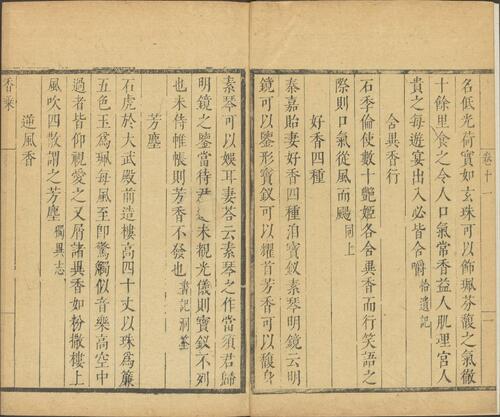 卷十
一
名低光荷實如玄珠可以飾珮芬馥之氣徹
十餘里食之令人口氣常香益人肌理宮人
貴之每遊宴出入必皆含嚼拾遺記
含異香行
石季倫使數十艷姬各含異香而行笑語之
際則口氣從風而颺同上
好香四種
秦嘉貽妻好香四種洎寳釵素琴明鏡云明
鏡可以鑒形寳釵可以耀首芳香可以馥身
素琴可以娛耳妻荅云素琴之作當須君歸
明鏡之鑒當待君還未覩光儀則寳釵不列
也未侍帷帳則芳香不發也書記洞筌
芳塵
石虎於大武殿前造樓高四十丈以珠爲簾
五色玉爲珮每風至即驚觸似音樂高空中
過者皆仰視愛之又屑諸異香如粉撒樓上
風吹四散謂之芳塵獨異志
逆風香
香乘